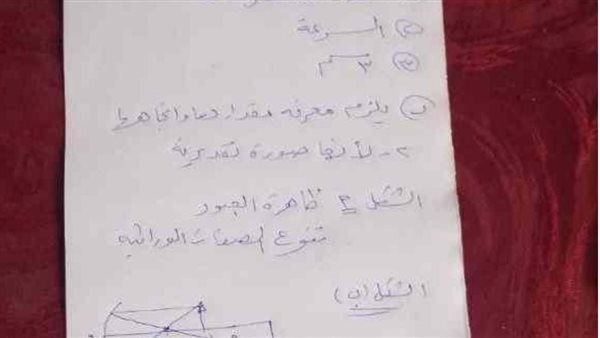 (٢) السرعة
(٣) ٣ سم
(ب) يلزم معرفة مقدارها واتجاهها
٢- لأنها صورة تقديرية
الشكل ج ظاهرة العبور
تنوع الصفات الوراثية
الشكل (ب)